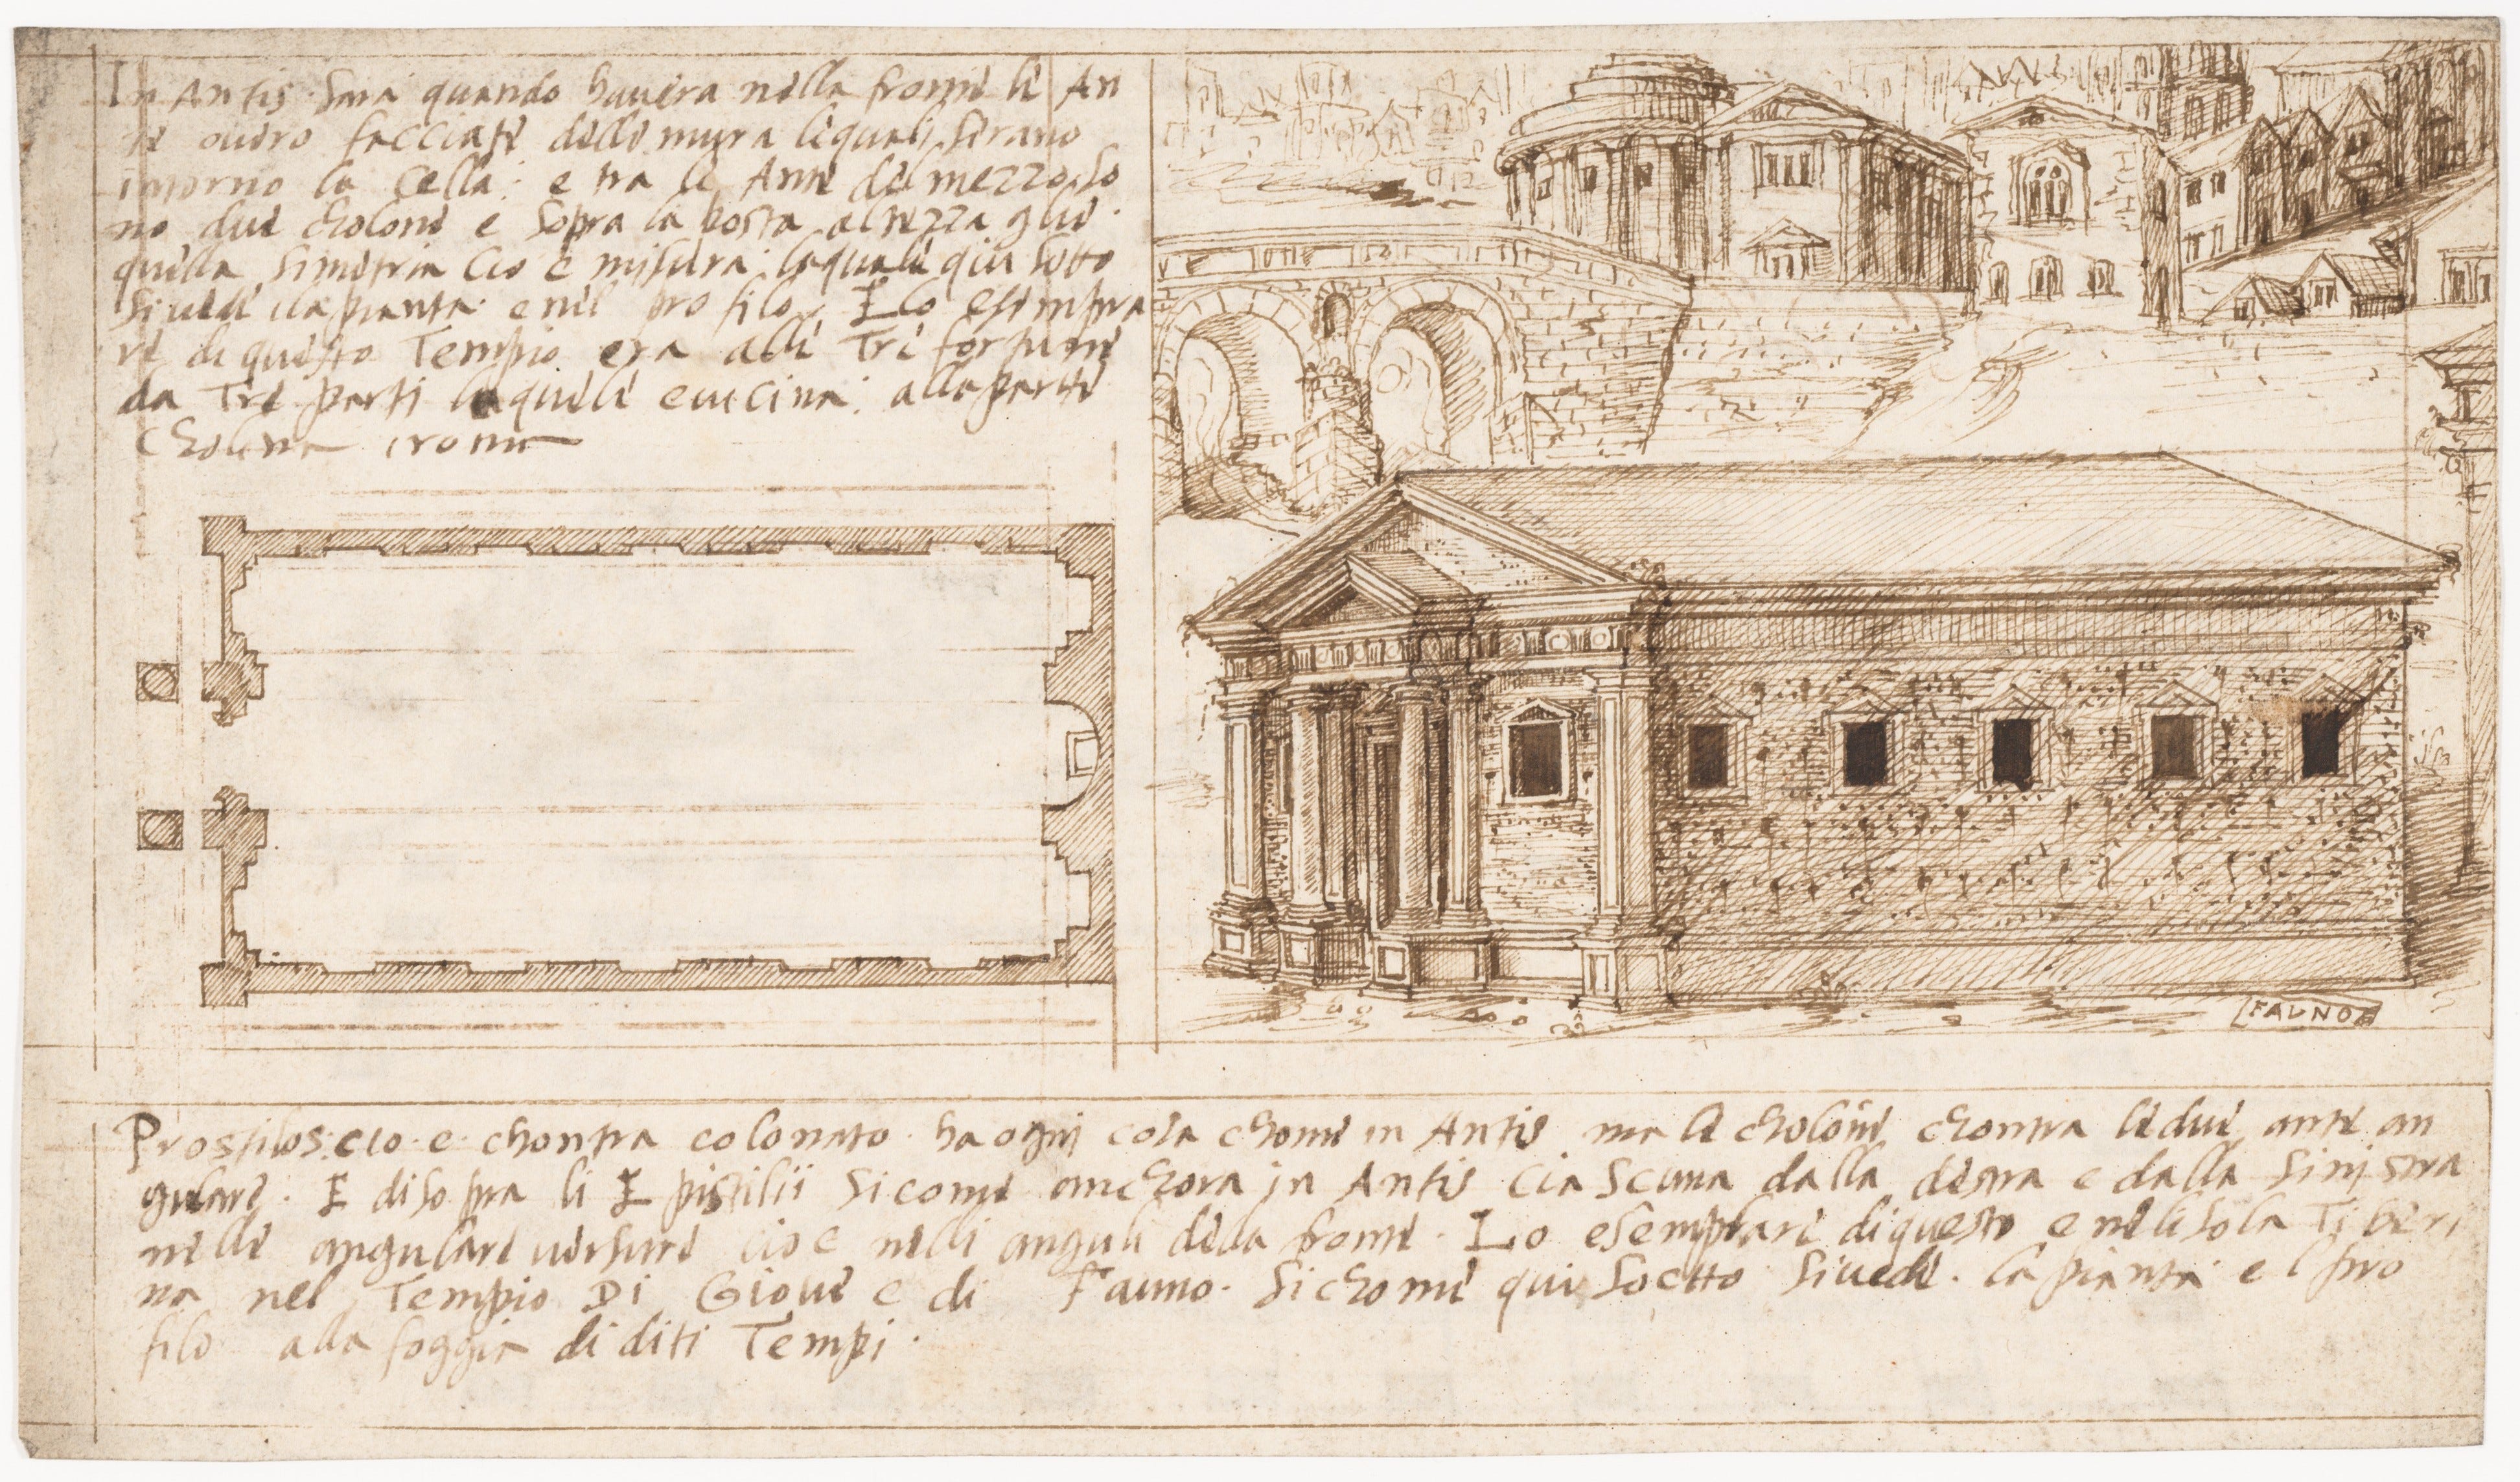 In Antis. Sara quando havera nella fronte le An
te overo facciate delle mura lequali serano
intorno la Cella: e tra le Ante del mezzo so
no due cholone e sopra la posta altezza glie
quella simetria cio e misura: laquale qui sotto
si vede ila pianta e nel profilo. E Lo esempra
re di questo Tempio era alle Tre fortune
da Tre parti laquele e vicina: alla parte
Cholina
FAVNO
Prostilos: cio. e. chontra colonato. ha ogni cosa chome in Antis ma le cholone chontra le due ante an
gulare. E di sopra li Epistilii si come anchora in Antis Ciascuna dalla destra e dalla sinistra
nelle angulare versure cio e nelli anguli dela fronte. Lo esemplare di questo e nelisola Tiberi
na nel Tempio Di Giove e di Fauno. Si chome qui Soctto Si vede. la pianta e l pro
filo alla foggia di diti Tempi.